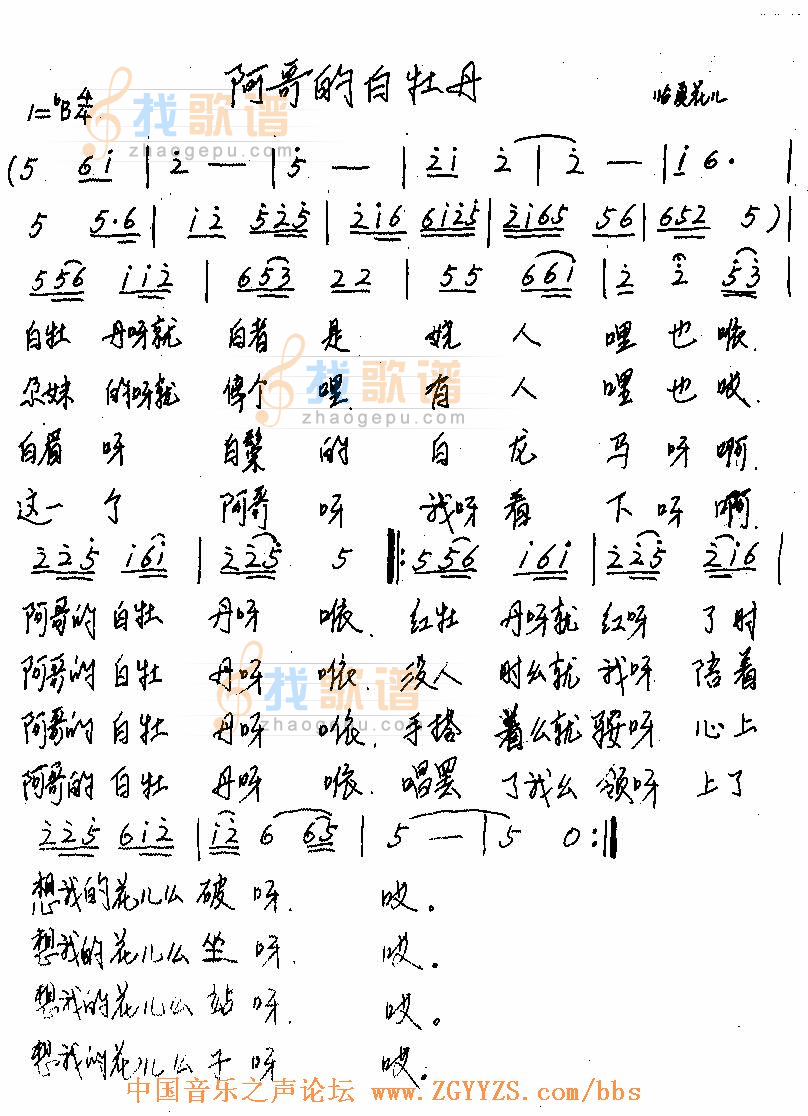 阿哥的白牡丹
临夏花儿
1=ᵇB 4/4
找歌谱
zhaogepu.com
(5 6i | 2 — | 5 — | 2i 2 | 2 — | i 6· |
5 5·6 | i2 525 | 2i6 6i25 | 2i65 56 | 652 5 )
556 ii2 | 653 22 | 55 66i | 2 2 53 |
白牡 丹呀就 白者 是 娆 人 哩也 喉
尕妹 的呀就 俜个 哩 有 人 哩也 哎
白着 呀 白鬃 的 白 龙 马呀 啊
这一 个 阿哥 呀 我呀 看 下呀 啊
找歌谱
zhaogepu.com
225 i6i | 225 5 ‖: 556 i6i | 225 2i6 |
阿哥的 白牡 丹呀 喉 红牡 丹呀就 红呀 了时
阿哥的 白牡 丹呀 喉 没人 时么就 我呀 陪着
阿哥的 白牡 丹呀 喉 手搭 着么就 鞍呀 心上
阿哥的 白牡 丹呀 喉 唱罢 了我么 领呀 上了
找歌谱
zhaogepu.com
225 6i2 | i2 6 65 | 5 — | 5 0 :‖
想我的花儿么 破呀 哎。
想我的花儿么 坐呀 哎。
想我的花儿么 站呀 哎。
想我的花儿么 子呀 哎。
中国音乐之声论坛 www.ZGYYZS.com/bbs